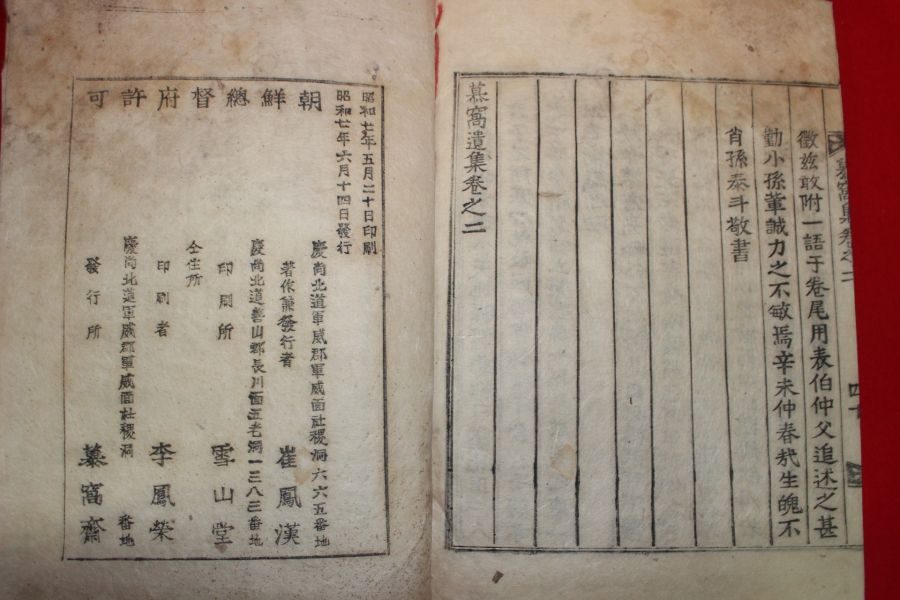 慕窩集卷之二
四十
徵玆敢附一語于卷尾用表伯仲父追述之甚
勤小孫董誠力之不敏焉辛未仲春哉生魄不
肖孫泰斗敬書
慕窩遺集卷之二
朝鮮總督府許可
昭和七年五月二十日印刷
昭和七年六月十四日發行
慶尚北道軍威郡軍威面社稷洞六六五番地
著作兼發行者 崔鳳漢
慶尚北道善山郡長川面五老洞一三八三番地
印刷所 雪山堂
仝住所
印刷者 李鳳榮
慶尚北道軍威郡軍威面社稷洞 番地
發行所 慕窩齋